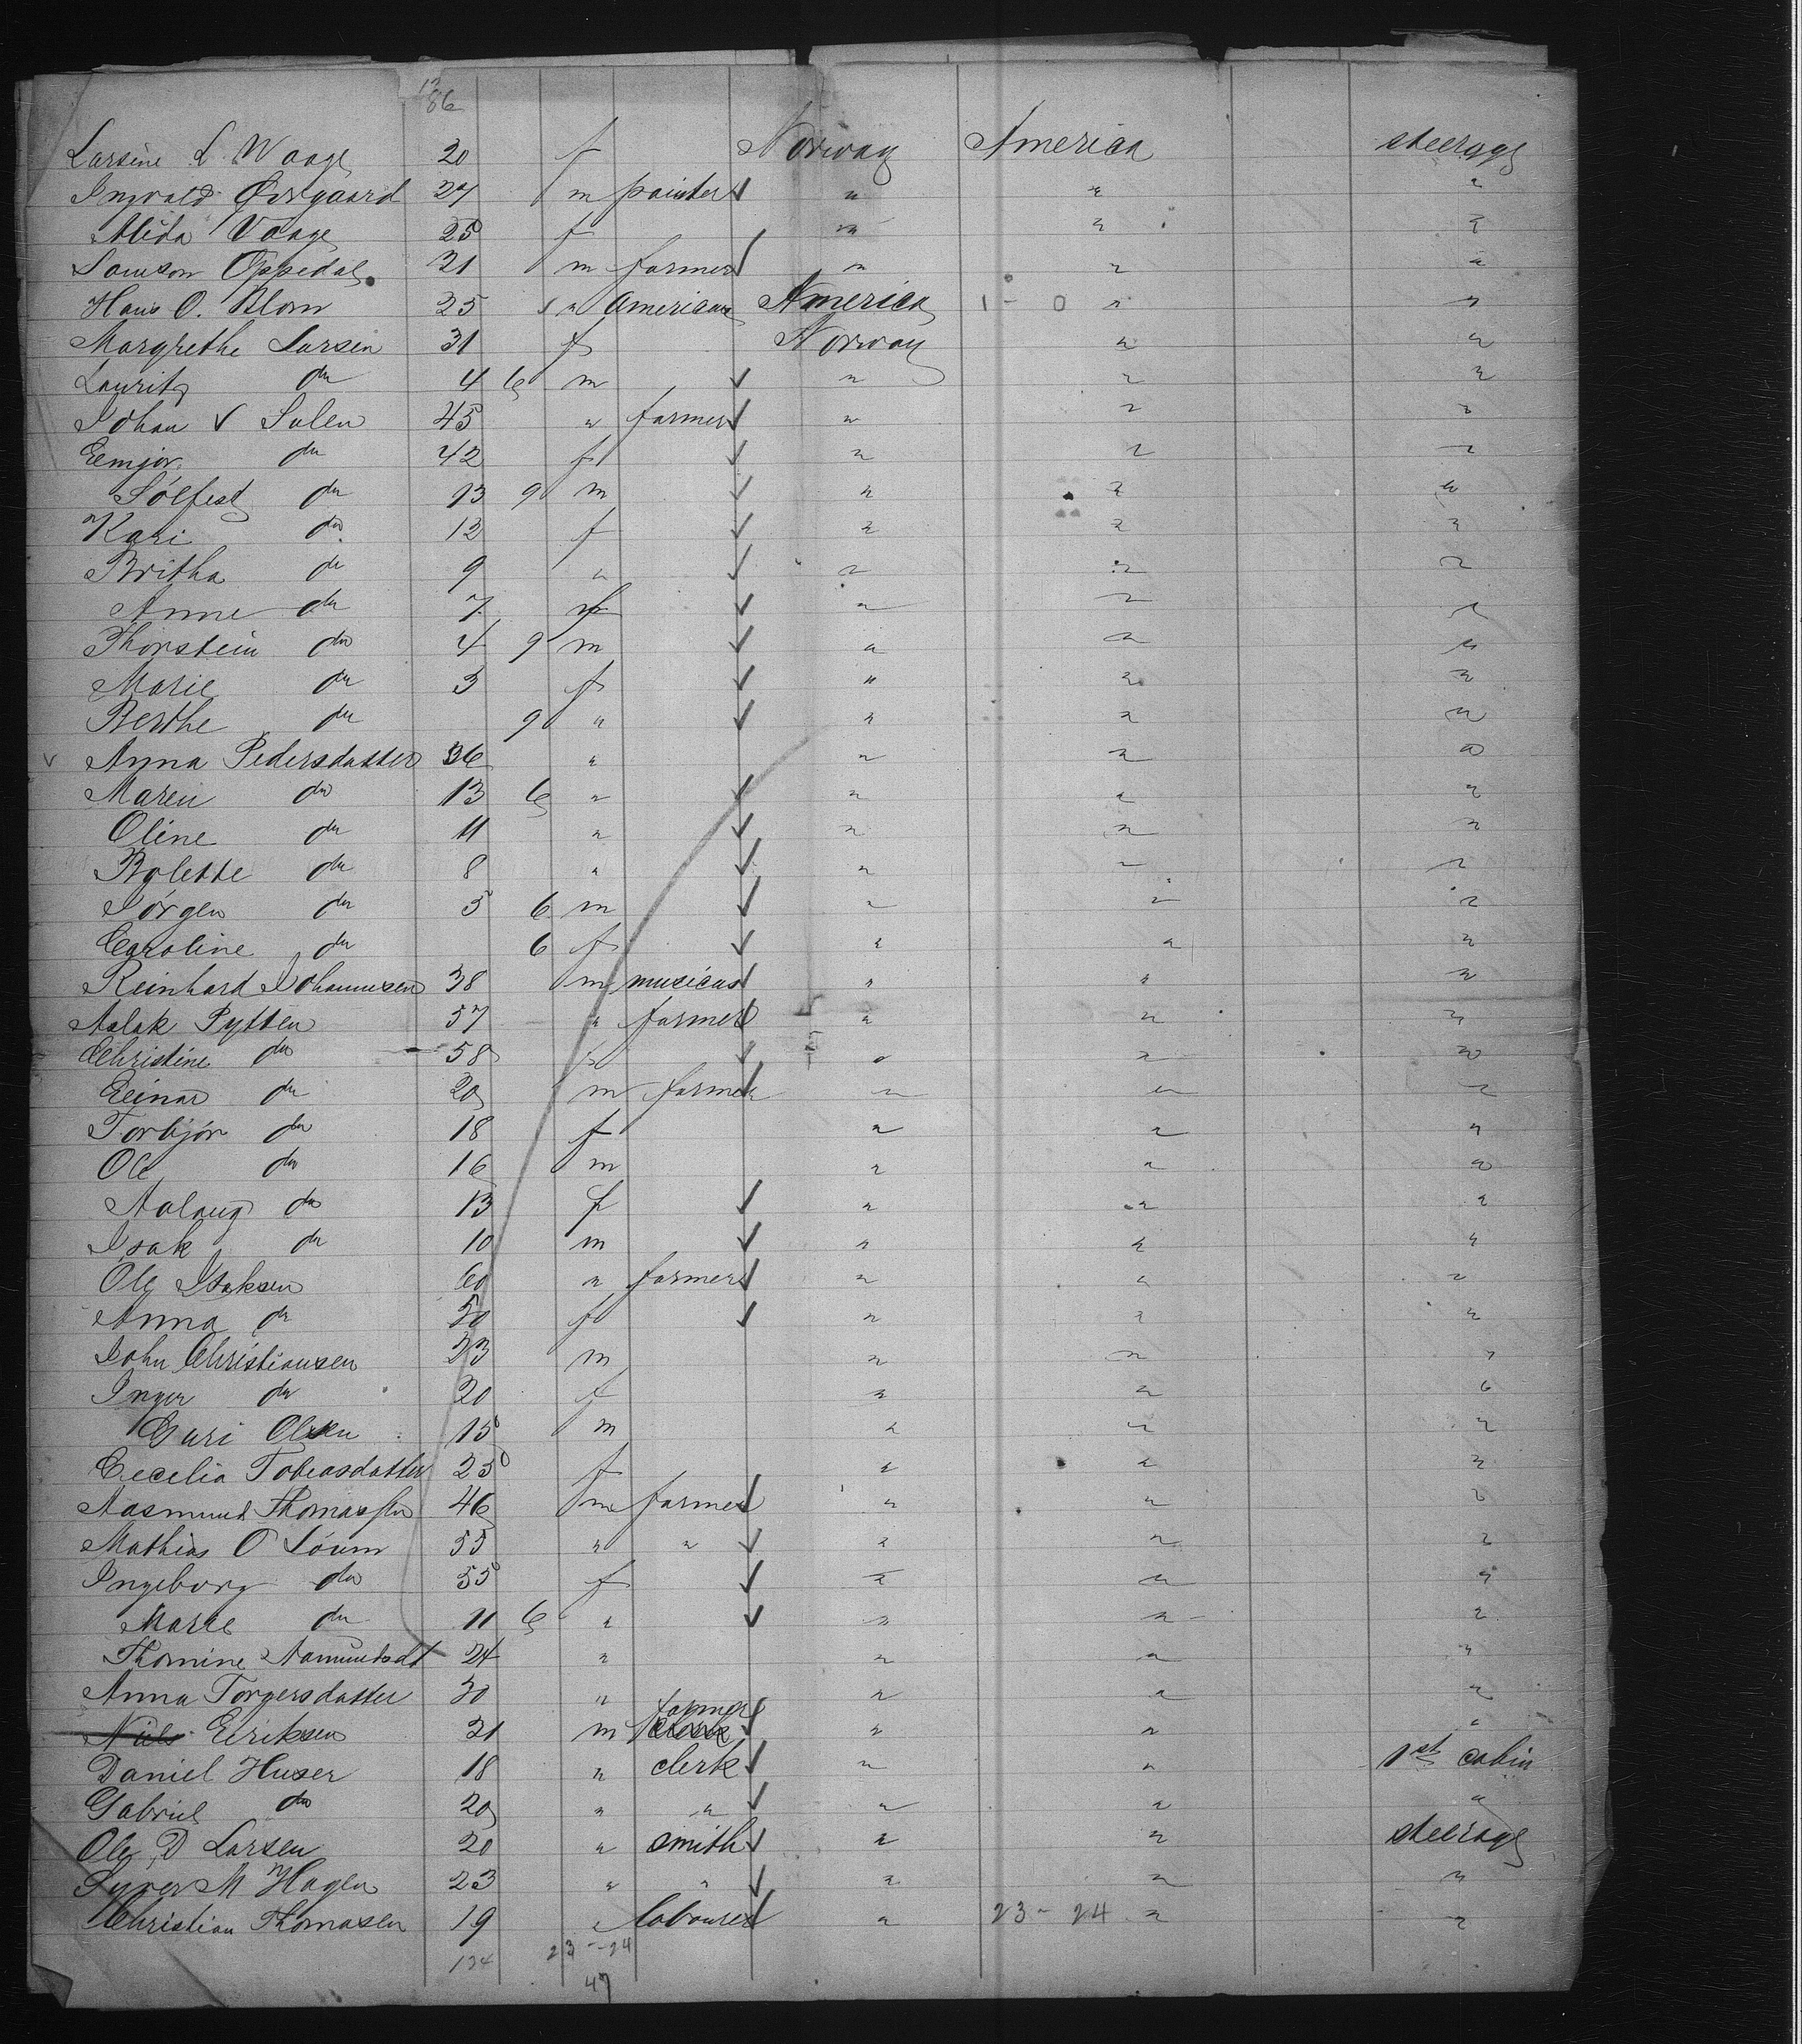 86
Larsine L. Waage 20 f Norway America steerage
Ingvald Østgaard 27 m painter ✓ " " "
Alida Vaage 25 f " " "
Samson Oppedal 21 m farmer ✓ " " "
Hans O. Blom 25 " American America 1 - 0 " "
Margrethe Larsen 31 f Norway " "
Lauritz do 4 6 m ✓ " " "
Johan V Sulen 45 " farmer ✓ " " "
Eemjor do 42 f ✓ " " "
Sölfest do 13 9 m ✓ " " "
Kari do 12 f ✓ " " "
Britha do 9 " ✓ " " "
Anne do 7 f ✓ " " "
Thorstein do 4 9 m ✓ " " "
Marie do 3 f ✓ " " "
Berthe do 9 " ✓ " " "
v Anna Pedersdatter 36 " " " "
Maren do 13 6 " ✓ " " "
Oline do 11 " ✓ " " "
Bolette do 8 " ✓ " " "
Jörgen do 5 6 m ✓ " " "
Caroline do 6 f ✓ " " "
Reinhard Johannusen 38 m musicus ✓ " " "
Aslak Pytten 57 " farmer ✓ " " "
Christine do 58 f ✓ " " "
Eeinar do 20 m farmer ✓ " " "
Torbjör do 18 f " " "
Ole do 16 m " " "
Aslaug do 13 f ✓ " " "
Isak do 10 m ✓ " " "
Ole Isaksen 60 " farmer ✓ " " "
Anna do 50 f ✓ " " "
John Christiansen 23 m " " "
Inger do 20 f " " "
Guri Olsen 15 m " " "
Cecelia Tobiasdatter 25 f " " "
Aasmund Thomassen 46 m farmer ✓ " " "
Mathias O Löum 55 " " ✓ " " "
Ingeborg do 55 f ✓ " " "
Marte do 11 6 " ✓ " " "
Thomine Aamundsdt 24 " " " "
Anna Torgersdatter 30 " " " "
Niels Eeriksen 21 m farmer ✓ " " "
Daniel Huser 18 " clerk ✓ " " 1st cabin
Gabriel do 20 " " ✓ " " "
Ole D Larsen 20 " smith ✓ " " steerage
Syver M Hagen 23 " " ✓ " " "
Christian Thomasen 19 " labourer ✓ " 23 - 24 " "
134 23 - 24
47